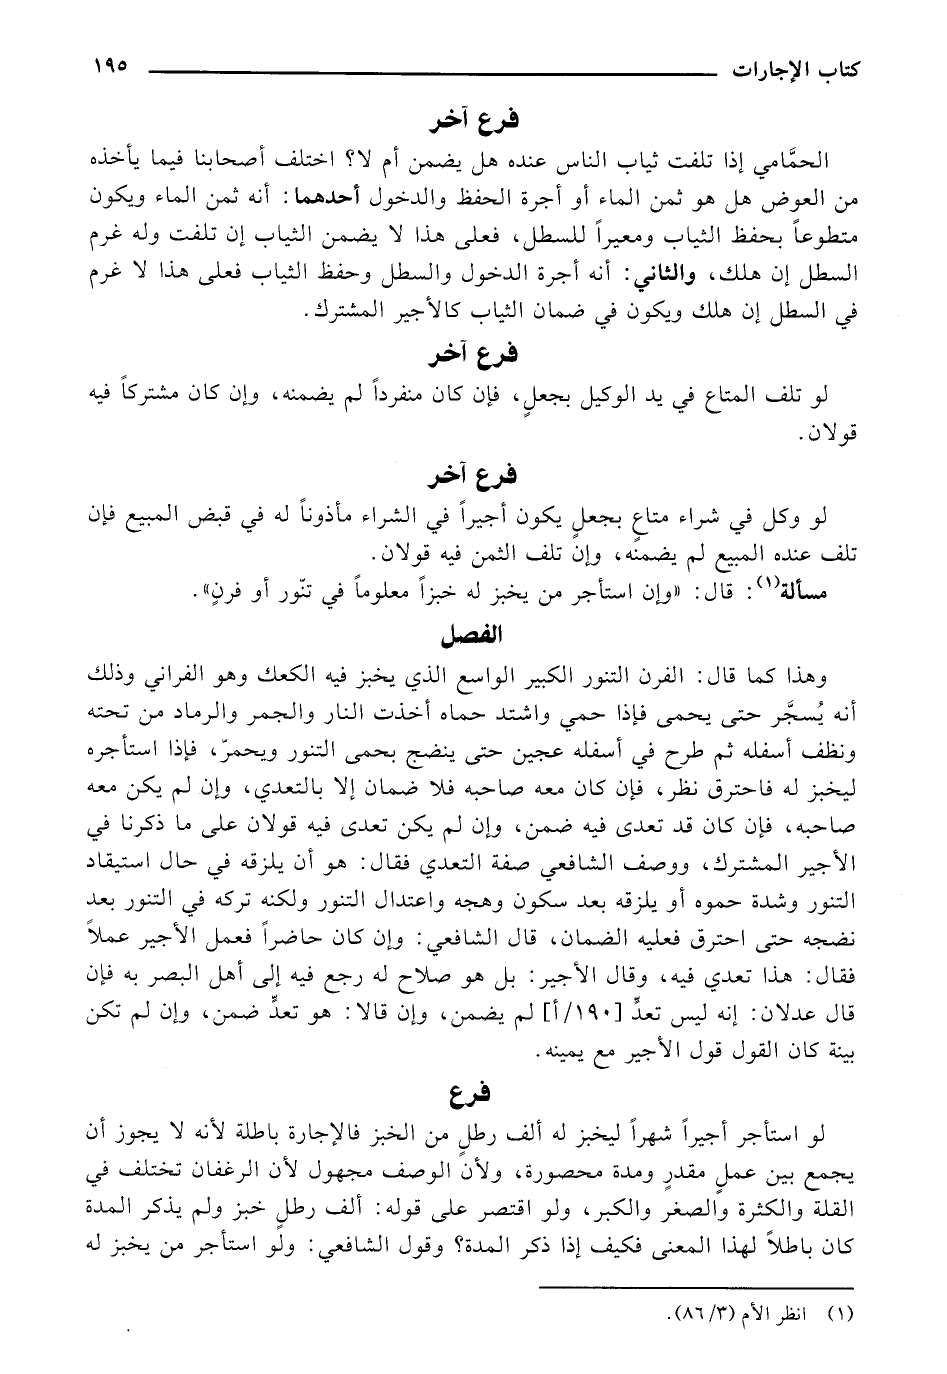 كتاب الإجارات ١٩٥
فرع آخر
الحمَّامي إذا تلفت ثياب الناس عنده هل يضمن أم لا؟ اختلف أصحابنا فيما يأخذه
من العوض هل هو ثمن الماء أو أجرة الحفظ والدخول أحدهما: أنه ثمن الماء ويكون
متطوعاً بحفظ الثياب ومعيراً للسطل، فعلى هذا لا يضمن الثياب إن تلفت وله غرم
السطل إن هلك، والثاني: أنه أجرة الدخول والسطل وحفظ الثياب فعلى هذا لا غرم
في السطل إن هلك ويكون في ضمان الثياب كالأجير المشترك.
فرع آخر
لو تلف المتاع في يد الوكيل بجعلٍ، فإن كان منفرداً لم يضمنه، وإن كان مشتركاً فيه
قولان.
فرع آخر
لو وكل في شراء متاعٍ بجعلٍ يكون أجيراً في الشراء مأذوناً له في قبض المبيع فإن
تلف عنده المبيع لم يضمنه، وإن تلف الثمن فيه قولان.
مسألة(١): قال: «وإن استأجر من يخبز له خبزاً معلوماً في تنّور أو فرنٍ».
الفصل
وهذا كما قال: الفرن التنور الكبير الواسع الذي يخبز فيه الكعك وهو الفراني وذلك
أنه يُسجَّر حتى يحمى فإذا حمي واشتد حماه أخذت النار والجمر والرماد من تحته
ونظف أسفله ثم طرح في أسفله عجين حتى ينضج بحمى التنور ويحمرّ، فإذا استأجره
ليخبز له فاحترق نظر، فإن كان معه صاحبه فلا ضمان إلا بالتعدي، وإن لم يكن معه
صاحبه، فإن كان قد تعدى فيه ضمن، وإن لم يكن تعدى فيه قولان على ما ذكرنا في
الأجير المشترك، ووصف الشافعي صفة التعدي فقال: هو أن يلزقه في حال استيقاد
التنور وشدة حموه أو يلزقه بعد سكون وهجه واعتدال التنور ولكنه تركه في التنور بعد
نضجه حتى احترق فعليه الضمان، قال الشافعي: وإن كان حاضراً فعمل الأجير عملاً
فقال: هذا تعدي فيه، وقال الأجير: بل هو صلاح له رجع فيه إلى أهل البصر به فإن
قال عدلان: إنه ليس تعدٍّ [١٩٠/أ] لم يضمن، وإن قالا: هو تعدٍّ ضمن، وإن لم تكن
بينة كان القول قول الأجير مع يمينه.
فرع
لو استأجر أجيراً شهراً ليخبز له ألف رطلٍ من الخبز فالإجارة باطلة لأنه لا يجوز أن
يجمع بين عملٍ مقدرٍ ومدة محصورة، ولأن الوصف مجهول لأن الرغفان تختلف في
القلة والكثرة والصغر والكبر، ولو اقتصر على قوله: ألف رطلٍ خبز ولم يذكر المدة
كان باطلاً لهذا المعنى فكيف إذا ذكر المدة؟ وقول الشافعي: ولو استأجر من يخبز له
(١) انظر الأم (٣/ ٨٦).